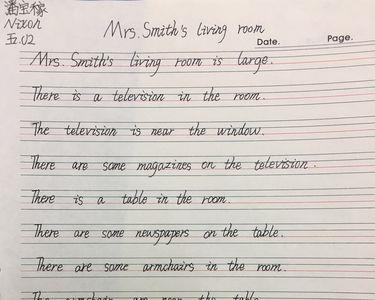 潘宝稼
Nixon
五.02
Mrs. Smith's living room
Date.
Page.
Mrs. Smith's living room is large.
There is a television in the room.
The television is near the window.
There are some magazines on the television.
There is a table in the room.
There are some newspapers on the table.
There are some armchairs in the room.
The armchairs are near the table.